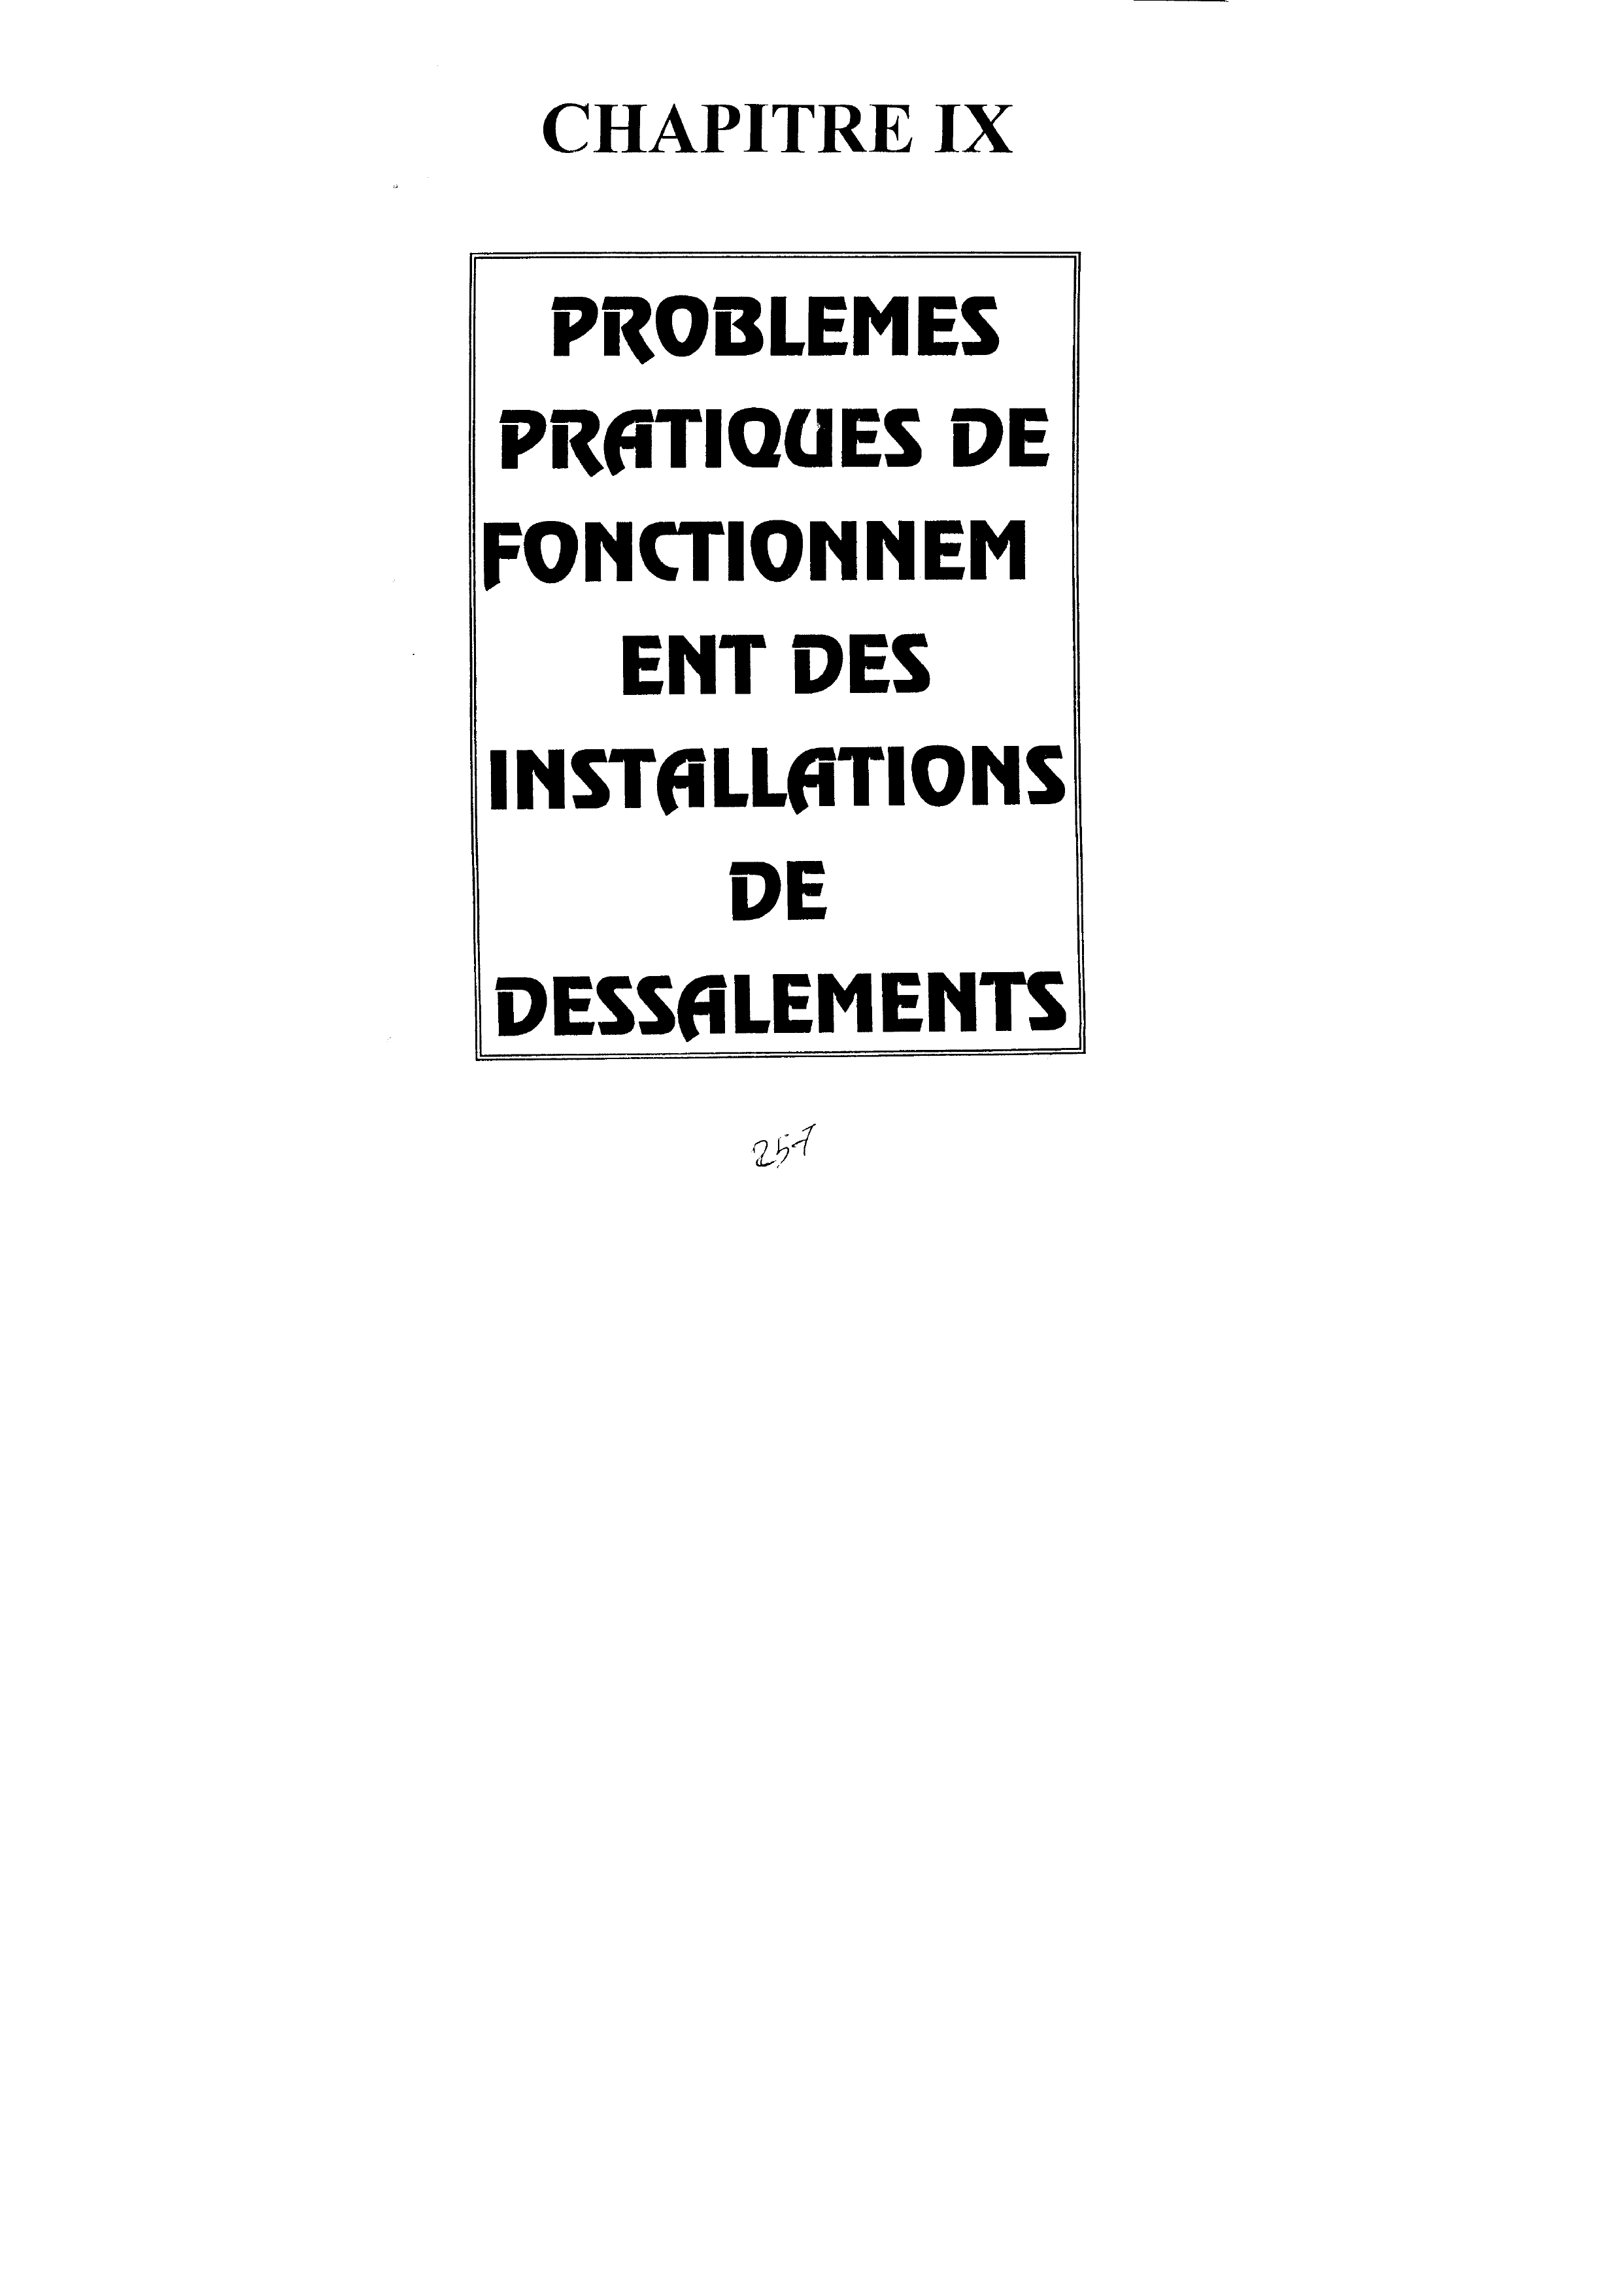 CHAPITRE IX
PROBLEMES
PRATIQUES DE
FONCTIONNEM
ENT DES
INSTALLATIONS
DE
DESSALEMENTS
257